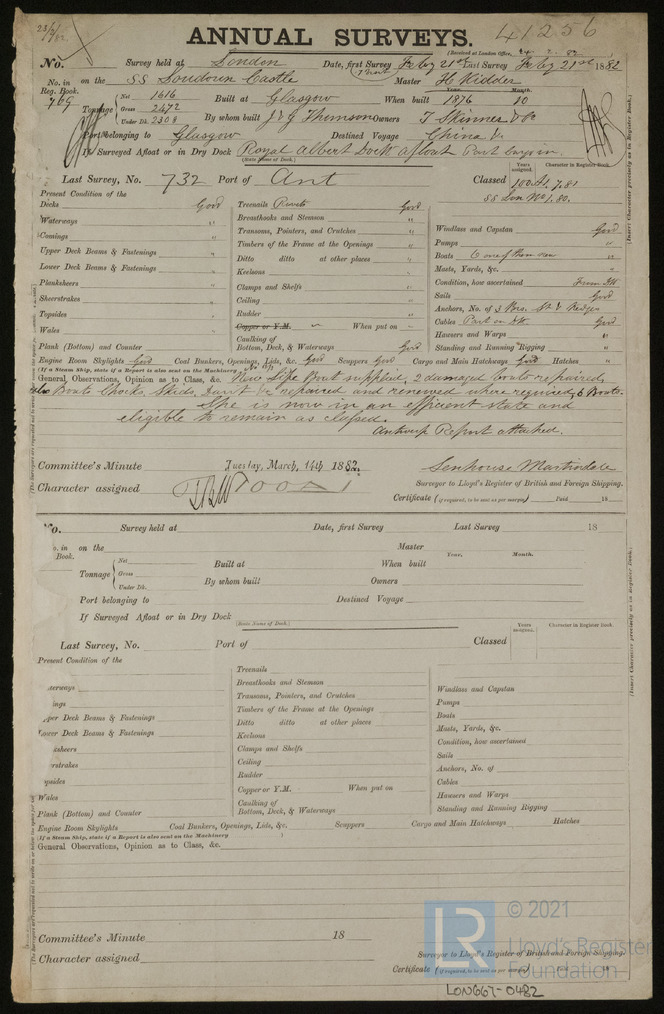 ANNUAL SURVEYS.
41256
(Received at London Office,
No. Survey held at London Date, first Survey Feby 21st Last Survey Feby 21st 1882
No. in Reg. Book. 769 on the SS Loudoun Castle Master H Kidder
Tonnage Net 1616 Gross 2472 Under Dk. 2308 Built at Glasgow When built Year. 1876 Month. 10
By whom built J & G Thomson Owners T Skinner & Co
Port belonging to Glasgow Destined Voyage China
If Surveyed Afloat or in Dry Dock Royal Albert Dock afloat Part cargo in
(State Name of Dock.)
Last Survey, No. 732 Port of Ant Classed Years assigned. Character in Register Book. 100A1. 7.81
SS Lon No 1. 80.
Present Condition of the
Decks Good
Waterways "
Comings "
Upper Deck Beams & Fastenings "
Lower Deck Beams & Fastenings "
Planksheers "
Sheerstrakes "
Topsides "
Wales "
Plank (Bottom) and Counter
Treenails Rivets Good
Breasthooks and Stemson "
Transoms, Pointers, and Crutches "
Timbers of the Frame at the Openings "
Ditto ditto at other places "
Keelsons "
Clamps and Shelfs "
Ceiling "
Rudder "
Copper or Y.M. When put on
Caulking of Bottom, Deck, & Waterways Good
Windlass and Capstan Good
Pumps "
Boats 6 one of them new "
Masts, Yards, &c. "
Condition, how ascertained From
Sails Good
Anchors, No. of 3 Bors. St & Kedges
Cables Part on dk Good
Hawsers and Warps "
Standing and Running Rigging "
Engine Room Skylights Good Coal Bunkers, Openings, Lids, &c. Good Scuppers Good Cargo and Main Hatchways Good Hatches "
(If a Steam Ship, state if a Report is also sent on the Machinery
General Observations, Opinion as to Class, &c. New Life Boat supplied, 2 damaged boats repaired,
Boats Chocks, Skids, repaired and renewed where required, 6 Boats.
She is now in an efficient state and
eligible to remain as classed.
Antwerp Report attached.
Committee's Minute Tuesday, March, 14th 1882.
Senhouse Martindale
Character assigned 100A1
Surveyor to Lloyd's Register of British and Foreign Shipping.
Certificate (if required, to be sent as per margin) Paid 18
No. Survey held at Date, first Survey Last Survey 18
in Book. on the Master
Tonnage Net Gross Under Dk. Built at When built Year. Month.
By whom built Owners
Port belonging to Destined Voyage
If Surveyed Afloat or in Dry Dock
(State Name of Dock.)
Last Survey, No. Port of Classed Years assigned. Character in Register Book.
Present Condition of the
Deck Beams & Fastenings
Lower Deck Beams & Fastenings
Wales
Plank (Bottom) and Counter
Treenails
Breasthooks and Stemson
Transoms, Pointers, and Crutches
Timbers of the Frame at the Openings
Ditto ditto at other places
Keelsons
Clamps and Shelfs
Ceiling
Rudder
Copper or Y.M. When put on
Caulking of Bottom, Deck, & Waterways
Windlass and Capstan
Pumps
Boats
Masts, Yards, &c.
Condition, how ascertained
Sails
Anchors, No. of
Cables
Hawsers and Warps
Standing and Running Rigging
Engine Room Skylights Coal Bunkers, Openings, Lids, &c. Scuppers Cargo and Main Hatchways Hatches
(If a Steam Ship, state if a Report is also sent on the Machinery )
General Observations, Opinion as to Class, &c.
Committee's Minute 18
Character assigned
Surveyor to Lloyd's Register of British and Foreign Shipping.
Certificate (if required, to be sent as per margin) Paid 18
LR © 2021 Lloyd's Register Foundation
LON667-0482